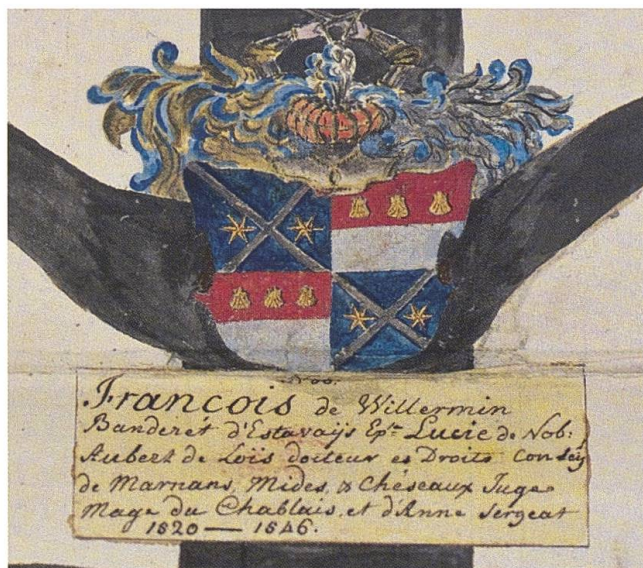 François de Willermin
Banderet d'Estavaÿs Ep.se Lucie de Nob:
Aubert de Loïs docteur es Droits Con
de Marnans, Mides, & Chéseaux Juge
Mage du Chablais, et d'Anne Sergeat
1520 — 1546.